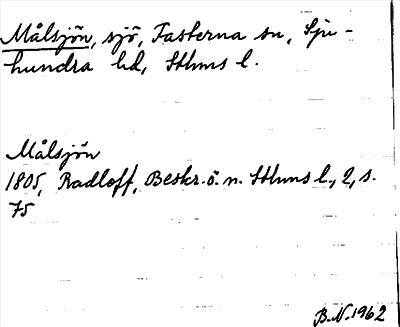 Målsjön, sjö, Fasterna sn, Sju-
hundra hd, Sthms l.
Målsjön
1805, Radloff, Beskr. ö. n. Sthms l., 2, s.
75
B.N. 1962